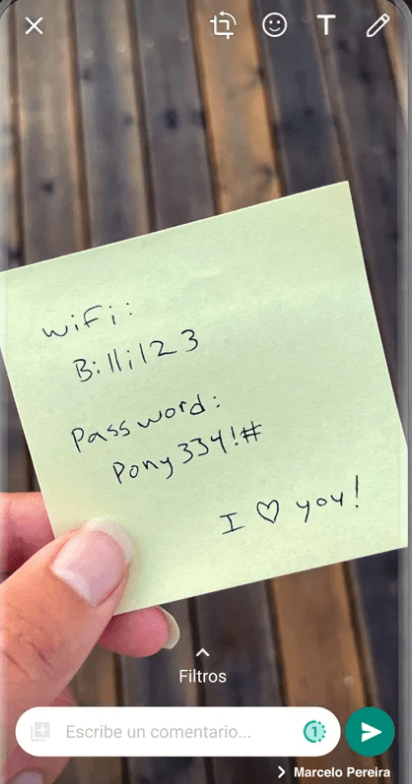 T
wifi:
Billi123
Password:
Pony334!#
I ♡ you!
Filtros
Escribe un comentario...
1
Marcelo Pereira